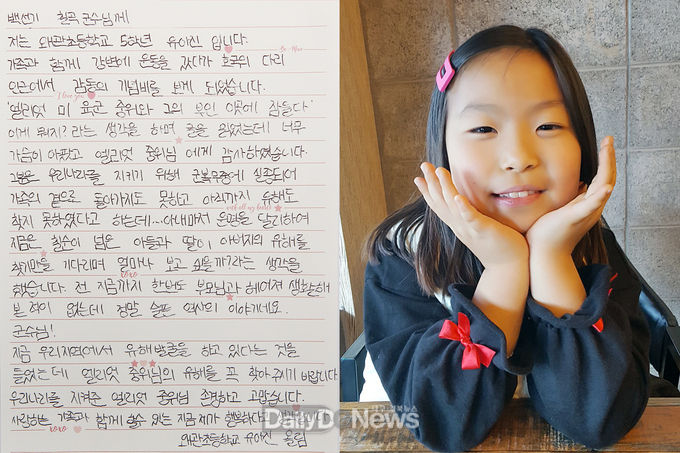 백선기 칠곡 군수님께
저는 왜관초등학교 5학년 유아진 입니다.
가족과 함께 강변에 운동을 갔다가 호국의 다리
인근에서 감동의 기념비를 보게 되었습니다.
I love you
'엘리엇 미 육군 중위와 그의 부인 이곳에 잠들다'
이게 뭐지? 라는 생각을 하며 글을 읽었는데 너무
가슴이 아팠고 엘리엇 중위님 에게 감사하였습니다.
그분은 우리나라를 지키기 위해 군복무중에 실종되어
가족의 곁으로 돌아가지도 못하고 아직까지 유해도
with all my heart
찾지 못하였다고 하는데...아내마저 운명을 달리하여
지금은 칠순이 넘은 아들과 딸이 아버지의 유해를
찾기만을 기다리며 얼마나 보고 싶을까?라는 생각을
xoxo
했습니다. 전 지금까지 한번도 부모님과 헤어져 생활해
본 적이 없는데 정말 슬픈 역사의 이야기네요.
군수님!
지금 우리지역에서 유해발굴을 하고 있다는 것을
들었는데 엘리엇 중위님의 유해를 꼭 찾아주시기 바랍니다.
우리나라를 지켜준 엘리엇 중위님 존경하고 고맙습니다.
사랑하는 가족과 함께 할수 있는 지금 제가 행복하다
xoxo
왜관초등학교 유아진 올림
DailyD News